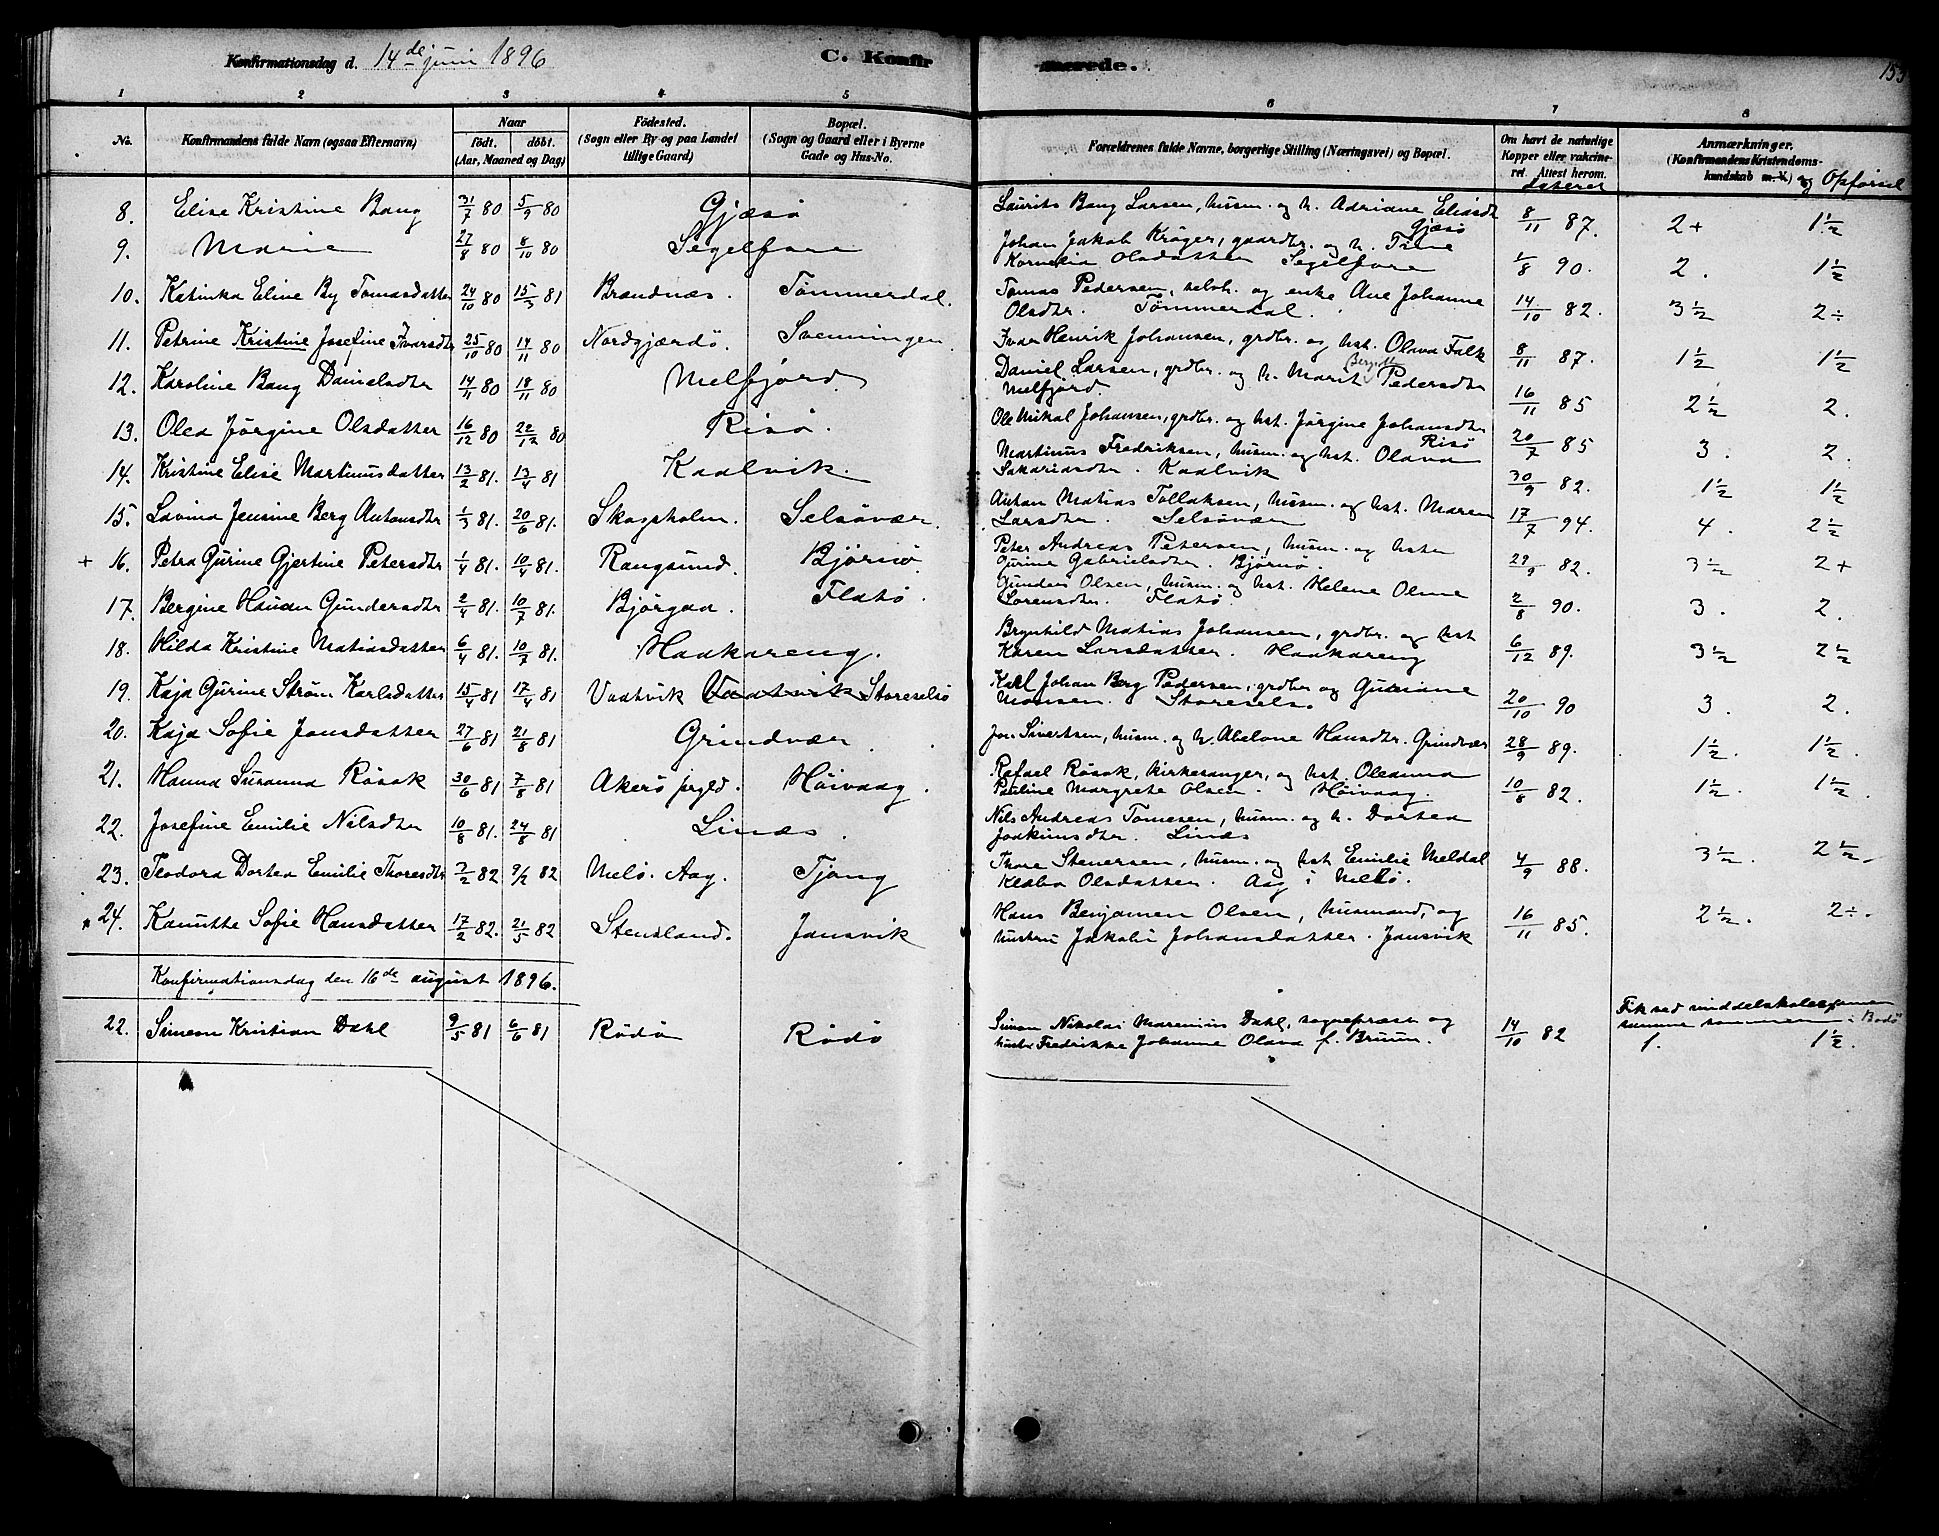 Konfirmationsdag d. 14de juni 1896 C. Konfirmerede. 153
1 2 3 4 5 6 7 8
No. Konfirmandens fulde Navn (ogsaa Efternavn) Naar født. døbt. (Aar, Maaned og Dag) Födested. (Sogn eller By og paa Landet tillige Gaard) Bopæl. (Sogn og Gaard eller i Byerne Gade og Hus-No. Forældrenes fulde Navne, borgerlige Stilling (Næringsvei) og Bopæl. Om havt de naturlige Kopper eller vakcineret. Attest herom. Anmærkninger. (Konfirmandens Kristendomskundskab m. V.) og Opførsel
8. Elise Kristine Bang 31/7 80 5/9 80 Gjæsø Laurits Bang Larsen, husm. og h. Adriane Eliasdt Gjæsø 8/11 87. 2+ 1½
9. Marie 27/8 80 8/10 80 Segelfore Johan Jakob Krøger, gaardbr. og h. Trine Kornelia Olsdatter Segelfore 1/8 90. 2. 1½
10. Katinka Eline By Tomasdatter 24/10 80 15/3 81 Brændnæs. Tømmerdal. Tomas Pedersen, selvh. og enke Ane Johanne Olsdtr. Tømmerdal. 14/10 82. 3½ 2÷
11. Petrine Kristine Josefine Ivarsdtr 25/10 80 14/11 80 Nordgjærdø. Svenningen. Ivar Henrik Johansen, grdbr. og hst. Olava Falk 8/11 87. 1½ 1½
12. Karoline Bang Danielsdtr 14/11 80 18/11 80 Melfjord Daniel Larsen, grdbr. og h. Marit Bergitte Pedersdtr Melfjord. 16/11 85 2½ 2.
13. Olea Jørgine Olsdatter 16/12 80 22/12 80 Risø. Ole Mikal Johansen, grdbr. og hst. Jørgine Johansdtr Risø 20/7 85 3. 2.
14. Kristine Elise Martinusdatter 13/2 81. 13/4 81 Kaalvik. Martinus Fredriksen, husm. og hst. Olava Sakariasdtr. Kaalvik 30/9 82. 1½ 1½
15. Lavina Jensine Berg Antonsdtr 1/3 81. 20/6 81. Skogsholm. Selsøvær. Anton Matias Tollaksen, husm. og hst. Maren Larsdtr. Selsøvær 17/7 94. 4. 2½
+ 16. Petra Gurine Gjertine Petersdtr 1/4 81. 10/4 81. Rangsund. Bjørnø. Peter Andreas Petersen, husm. og hstr Gurine Gabrielsdtr. Bjørnø. 29/9 82. 3½ 2+
17. Bergine Hauan Gundersdtr 2/4 81. 10/7 81. Bjørgaa. Flatø. Gunders Olsen, husm. og hst. Helene Oline Sørensdtr. Flatø. 2/8 90. 3. 2.
18. Hilda Kristine Matiasdatter 6/4 81. 10/7 81. Haakareng. Brynhild Matias Johansen, grdbr. og hst Karen Larsdatter. Haakareng 6/12 89. 3½ 2½
19. Kaja Gurine Strøm Karlsdatter 15/4 81 17/4 81 Vaatvik Vaatvik Storeselsø Karl Johan Berg Pedersen, grdbr og Guriane Monsen. Storesels. 20/10 90 3. 2.
20. Kaja Sofie Jonsdatter 27/6 81 21/8 81 Grindvær. Jon Sivertsen, husm. og h. Abelone Hansdtr. Grindvær 28/9 89. 1½. 1½.
21. Hanna Susanna Røsok 30/6 81 7/8 81 Akerø prgld. Høivaag. Rafael Røsok, kirkesanger, og hst. Oleanna Pauline Margrete Olsen. Høivaag. 10/8 82. 1½. 1½.
22. Josefine Emilie Nilsdtr 10/8 81. 24/8 81 Linæs. Nils Andreas Tomesen, husm. og h. Dortea Joakimsdtr. Linæs
23. Teodora Dortea Emilie Thoresdtr 3/2 82 9/2 82 Melø. Aag. Tjong Thore Stenersen, husm. og hst Emilie Meldal Klæboe Olsdatter. Aag i Melø. 4/9 88. 3½. 2½.
* 24. Kanutte Sofie Hansdatter 17/2 82. 21/5 82 Stensland. Jansvik Hans Benjamen Olsen, husmand, og hustru Jakobi Johansdatter. Jansvik 16/11 85. 2½. 2÷.
Konfirmationsdag den 16de august 1896.
22. Simeon Kristian Dahl 9/5 81 6/6 81 Rødø Rødø Simon Nikolai Marenius Dahl, sognepræst og hustr Fredrikke Johanne Olava f. Bruun. 14/10 82 Fik sed middelskoleexamen samme sommeren i Bodø 1. 1½.